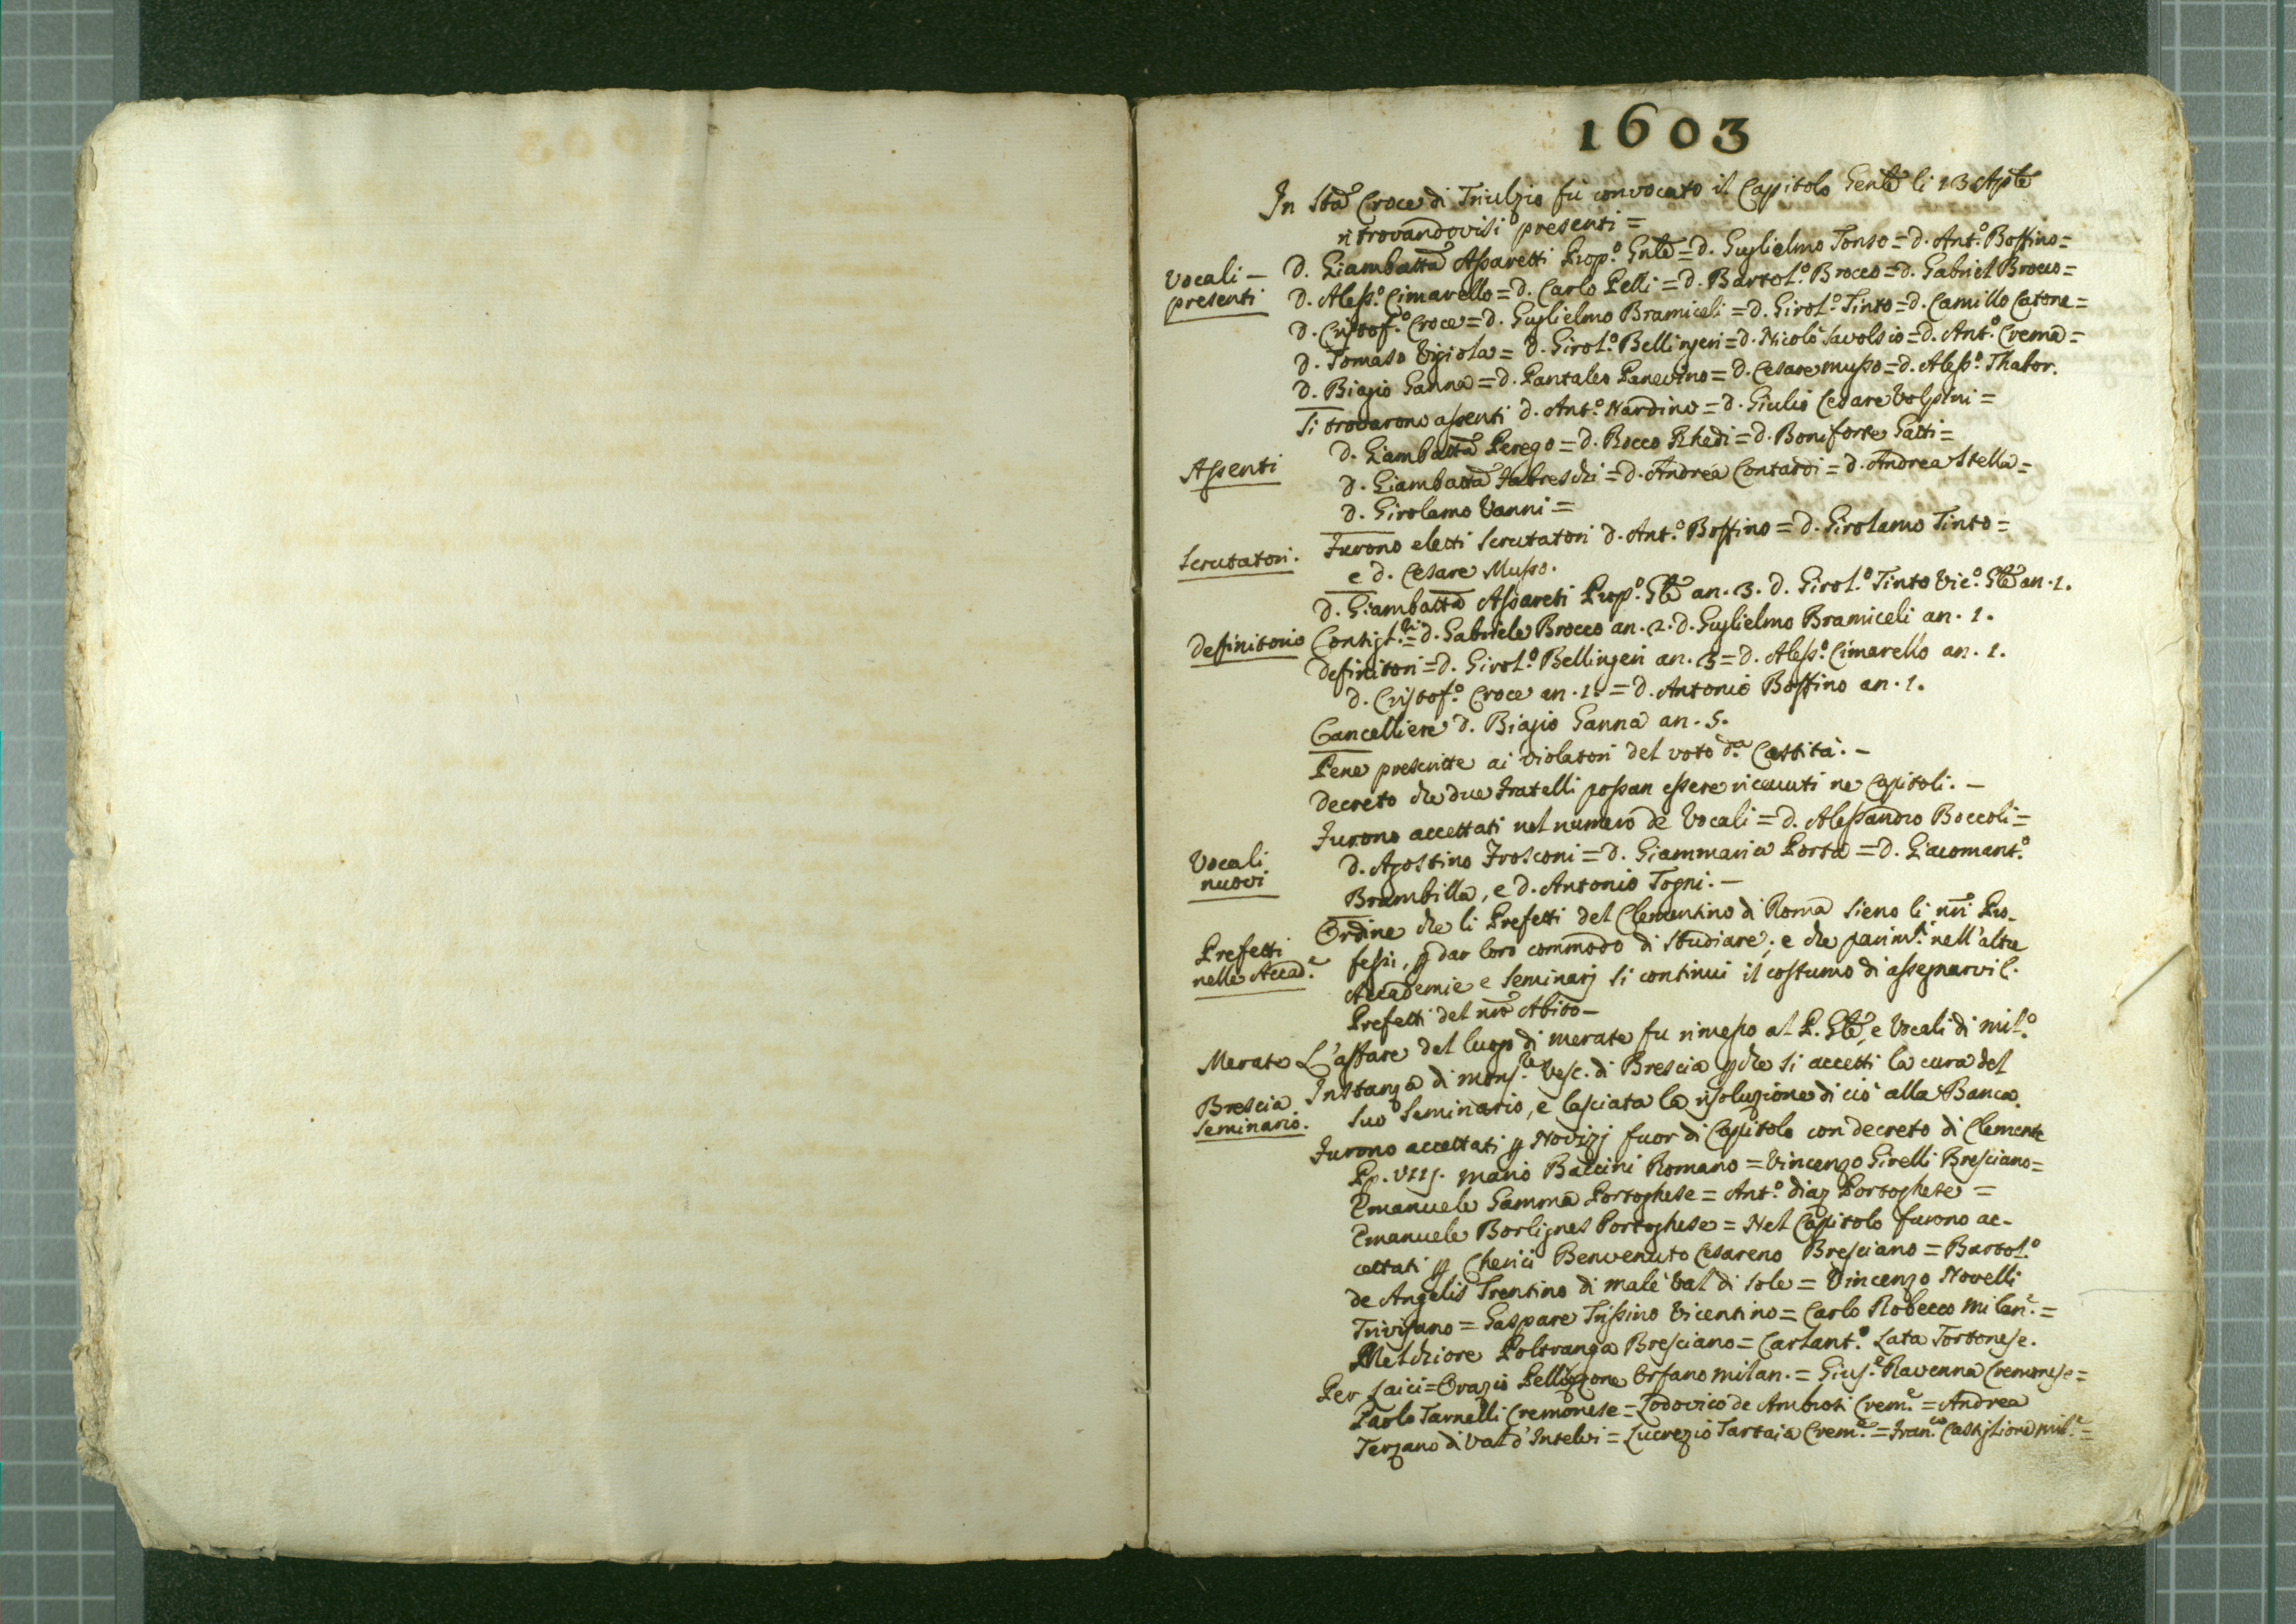 1603
In Sta Croce di Triulzio fu convocato il Capitolo Genle li 13 Aple
ritrovandovisi presenti =
Vocali –
presenti
D. Giambatta Assaretti Prop.o Gnle = D. Guglielmo Tonso = D. Ant.o Boffino =
D. Aless.o Cimarello = D. Carlo Pelli = D. Bartol.o Brocco = D. Gabriel Brocco =
D. Cristof.o Croce = D. Guglielmo Bramiceli = D. Girol.o Tinto = D. Camillo Catone =
D. Tomaso Vigiola = D. Girol.o Bellingeri = D. Nicolò Savolsio = D. Ant.o Crema =
D. Biagio Ganna = D. Pantaleo Panevino = D. Cesare Musso = D. Aless.o Thabor.
Assenti
Si trovarono assenti D. Ant.o Nardino = D. Giulio Cesare Volpini =
D. Giambatta Perego = D. Rocco Rhedi = D. Boniforte Gatti =
D. Giambatta Fabreschi = D. Andrea Contardi = D. Andrea Stella =
D. Girolamo Vanni =
Scrutatori.
Furono eletti Scrutatori D. Ant.o Boffino = D. Girolamo Tinto =
e D. Cesare Musso.
Definitorio
D. Giambatta Assareti Prop.o Gle an. 3. D. Girol.o Tinto Vic.o Gle an. 1.
Consigl.ri = D. Gabriele Brocco an. 2. D. Guglielmo Bramiceli an. 1.
Definitori = D. Girol.o Bellingeri an. 3 = D. Aless.o Cimarello an. 1.
D. Cristof.o Croce an. 1. = D. Antonio Boffino an. 1.
Cancelliere D. Biagio Ganna an. 5.
Pene prescritte ai violatori del voto d.a Castità. –
Decreto che due Fratelli possan essere ricevuti ne Capitoli. –
Vocali
nuovi
Furono accettati nel numero de Vocali = D. Alessandro Boccoli =
D. Agostino Frosconi = D. Giammaria Porta = D. Giacomant.o
Brambilla, e D. Antonio Togni. –
Prefetti
nelle Accad.e
Ordine che li Prefetti del Clementino di Roma sieno li nri Pro-
fessi, p dar loro commodo di studiare; e che parim.ti nell'altre
Accademie e Seminarj si continui il costumo di assegnarvil.
Prefetti del nro Abito –
Merate
L'affare del luogo di Merate fu rimesso al P. Gle, e Vocali di Mil.o
Brescia
Seminario.
Instanza di Mons.re Vesc. di Brescia p che si accetti la cura del
suo Seminario, e lasciata la risoluzione di ciò alla Banca.
Furono accettati p Novizj fuor di Capitolo con decreto di Clemente
Pp. VIIj. Mario Baccini Romano = Vincenzo Girelli Bresciano =
Emanuele Gamma Portoghese = Ant.o Diaz Portoghese =
Emanuele Borlignes Portoghese = Nel Capitolo furono ac-
cettati p Cherici Benvenuto Cesareno Bresciano = Bartol.o
de Angelis Trentino di Malè Val di Sole = Vincenzo Novelli
Trivisano = Gaspare Trissino Vicentino = Carlo Robecco Milan.e =
Melchiore Poltranga Bresciano = Carlant.o Lata Tortonese.
Per Laici = Orazio Pellizzone Orfano Milan. = Gius.e Ravenna Cremonese =
Paolo Tarnelli Cremonese = Lodovico de Ambrosi Crem.e = Andrea
Terzano di Val d'Intelvi = Lucrezio Tartaia Crem.e = Fran.co Castiglione Mil.e =